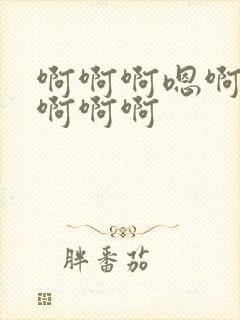 啊啊啊嗯啊
啊啊啊
胖番茄